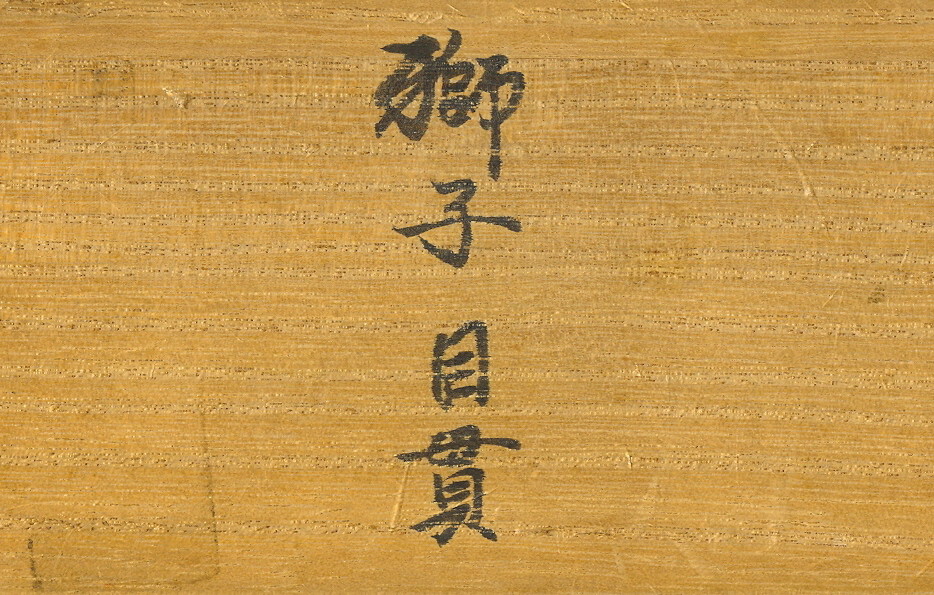 獅子目貫